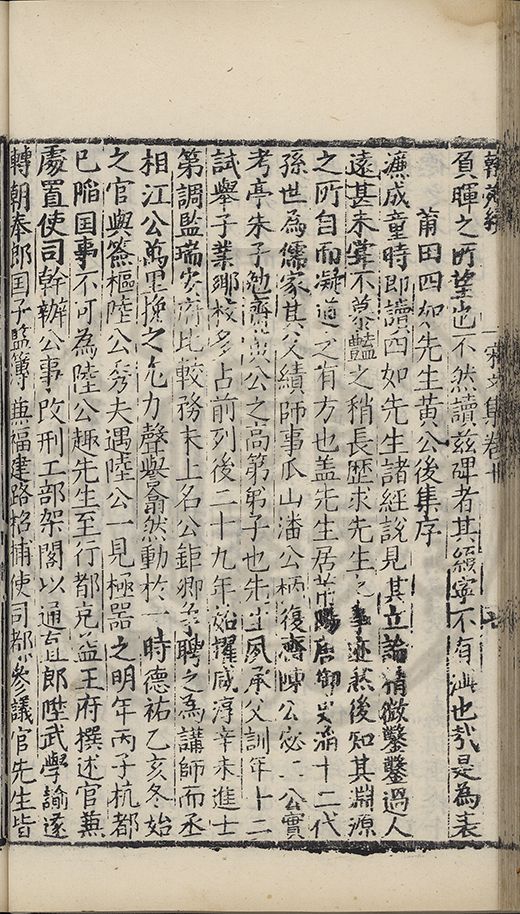 負暉之所望也不然讀茲碑者其經寧不有泚也哉是為表
莆田四如先生黃公後集序
濂成童時即讀四如先生諸經說見其立論精微鑿鑿過人
遠甚未嘗不慕豔之稍長歷求先生之事迹然後知其淵源
之所自而凝道之有方也盖先生居莆陽唐御史滔十二代
孫世為儒家其父績師事瓜山潘公柄復齋陳公宓二公實
考亭朱子勉齋黃公之高第弟子也先生夙承父訓年十二
試舉子業鄉校多占前列後二十九年始擢咸淳辛未進士
第調監瑞安府比較務未上名公鉅卿爭聘之為講師而丞
相江公萬里挽之尤力聲譽翕然動於一時德祐乙亥冬始
之官與簽樞陸公秀夫遇陸公一見極器之明年丙子杭都
已陷国事不可為陸公趣先生至行都充益王府撰述官兼
處置使司幹辦公事改刑工部架閣以通直郎陞武學諭遂
轉朝奉郎国子監簿兼福建路招捕使司都參議官先生皆